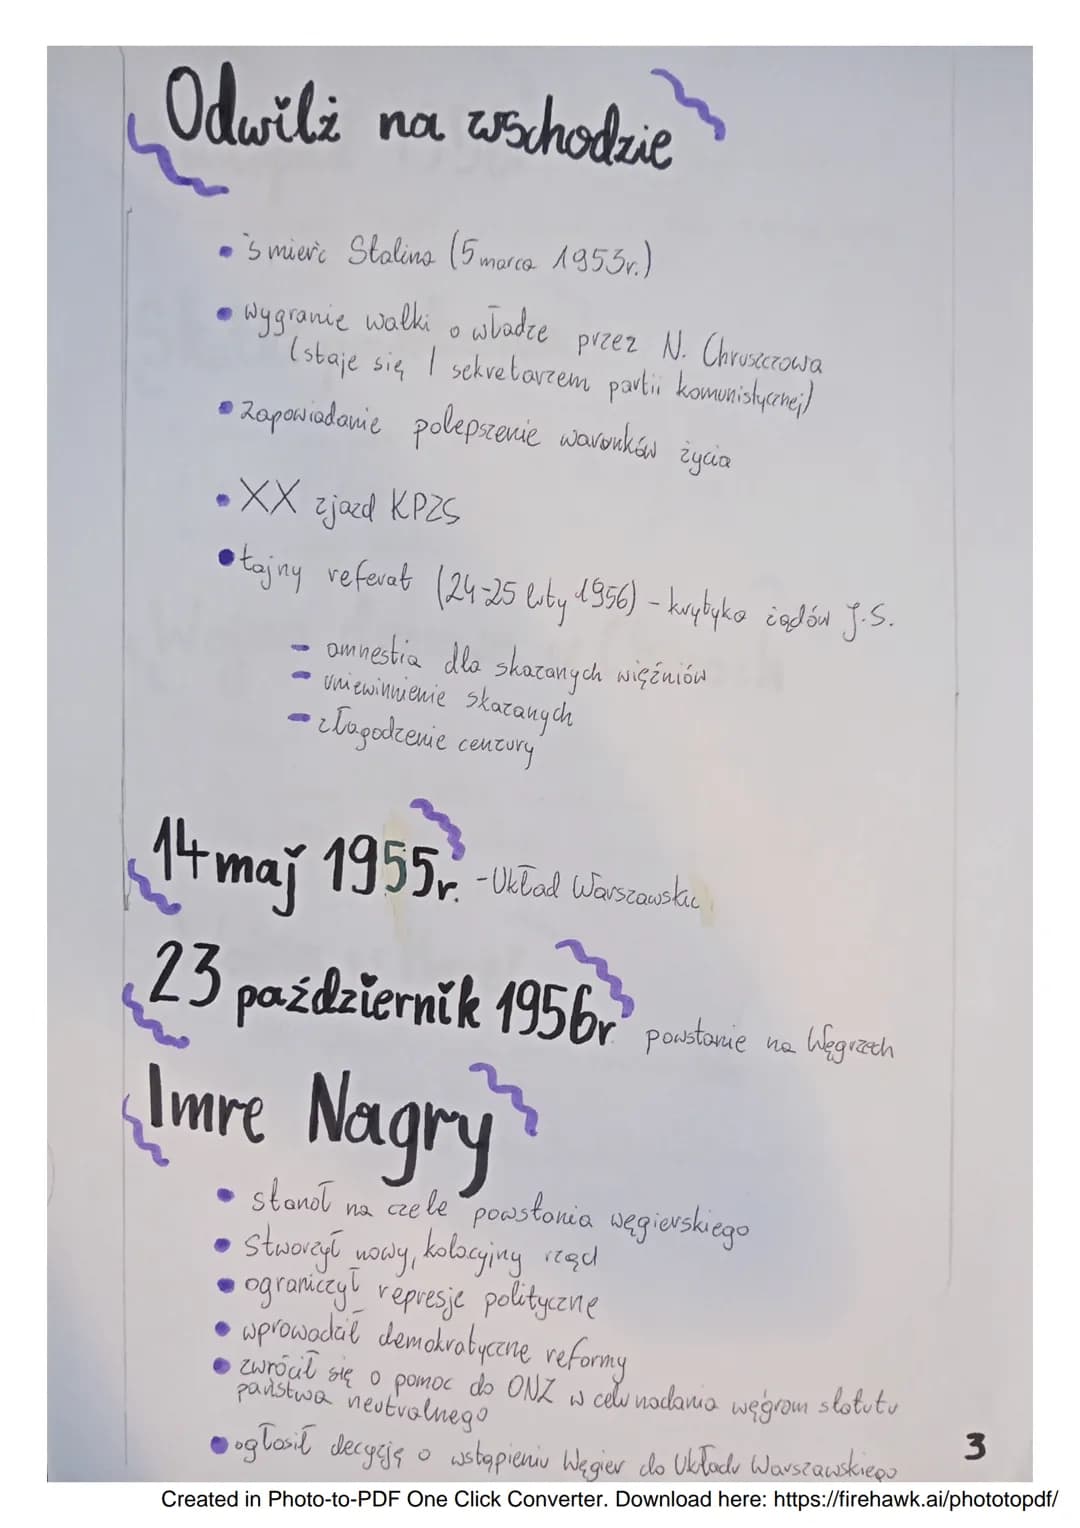 Odwilż na wschodzie
• śmierć Stalina (5 marca 1953r.)
• wygranie walki o władze przez N. Chruszczowa
(staje się I sekretarzem partii komunistycznej)
• Zapowiadanie polepszenie warunków życia
• XX zjazd KPZS
• tajny referat (24-25 luty 1956) - krytyka żądów J.S.
- amnestia dla skazanych więźniów
- uniewinnienie skazanych
- złagodzenie cenzury
14 maj 1955r. - Układ Warszawski
23 październik 1956r powstanie na Węgrzech
Imre Nagry
• stanoł na czele powstania węgierskiego
• Stworzył nowy, kolacyjny rząd
• ograniczył represje polityczne
• wprowadził demokratyczne reformy
• zwrócił się o pomoc do ONZ w celu nadania węgrom statutu
państwa neutralnego
• ogłosił decyzję o wstąpieniu Węgier do Układu Warszawskiego
3
Created in Photo-to-PDF One Click Converter. Download here: https://firehawk.ai/phototopdf/